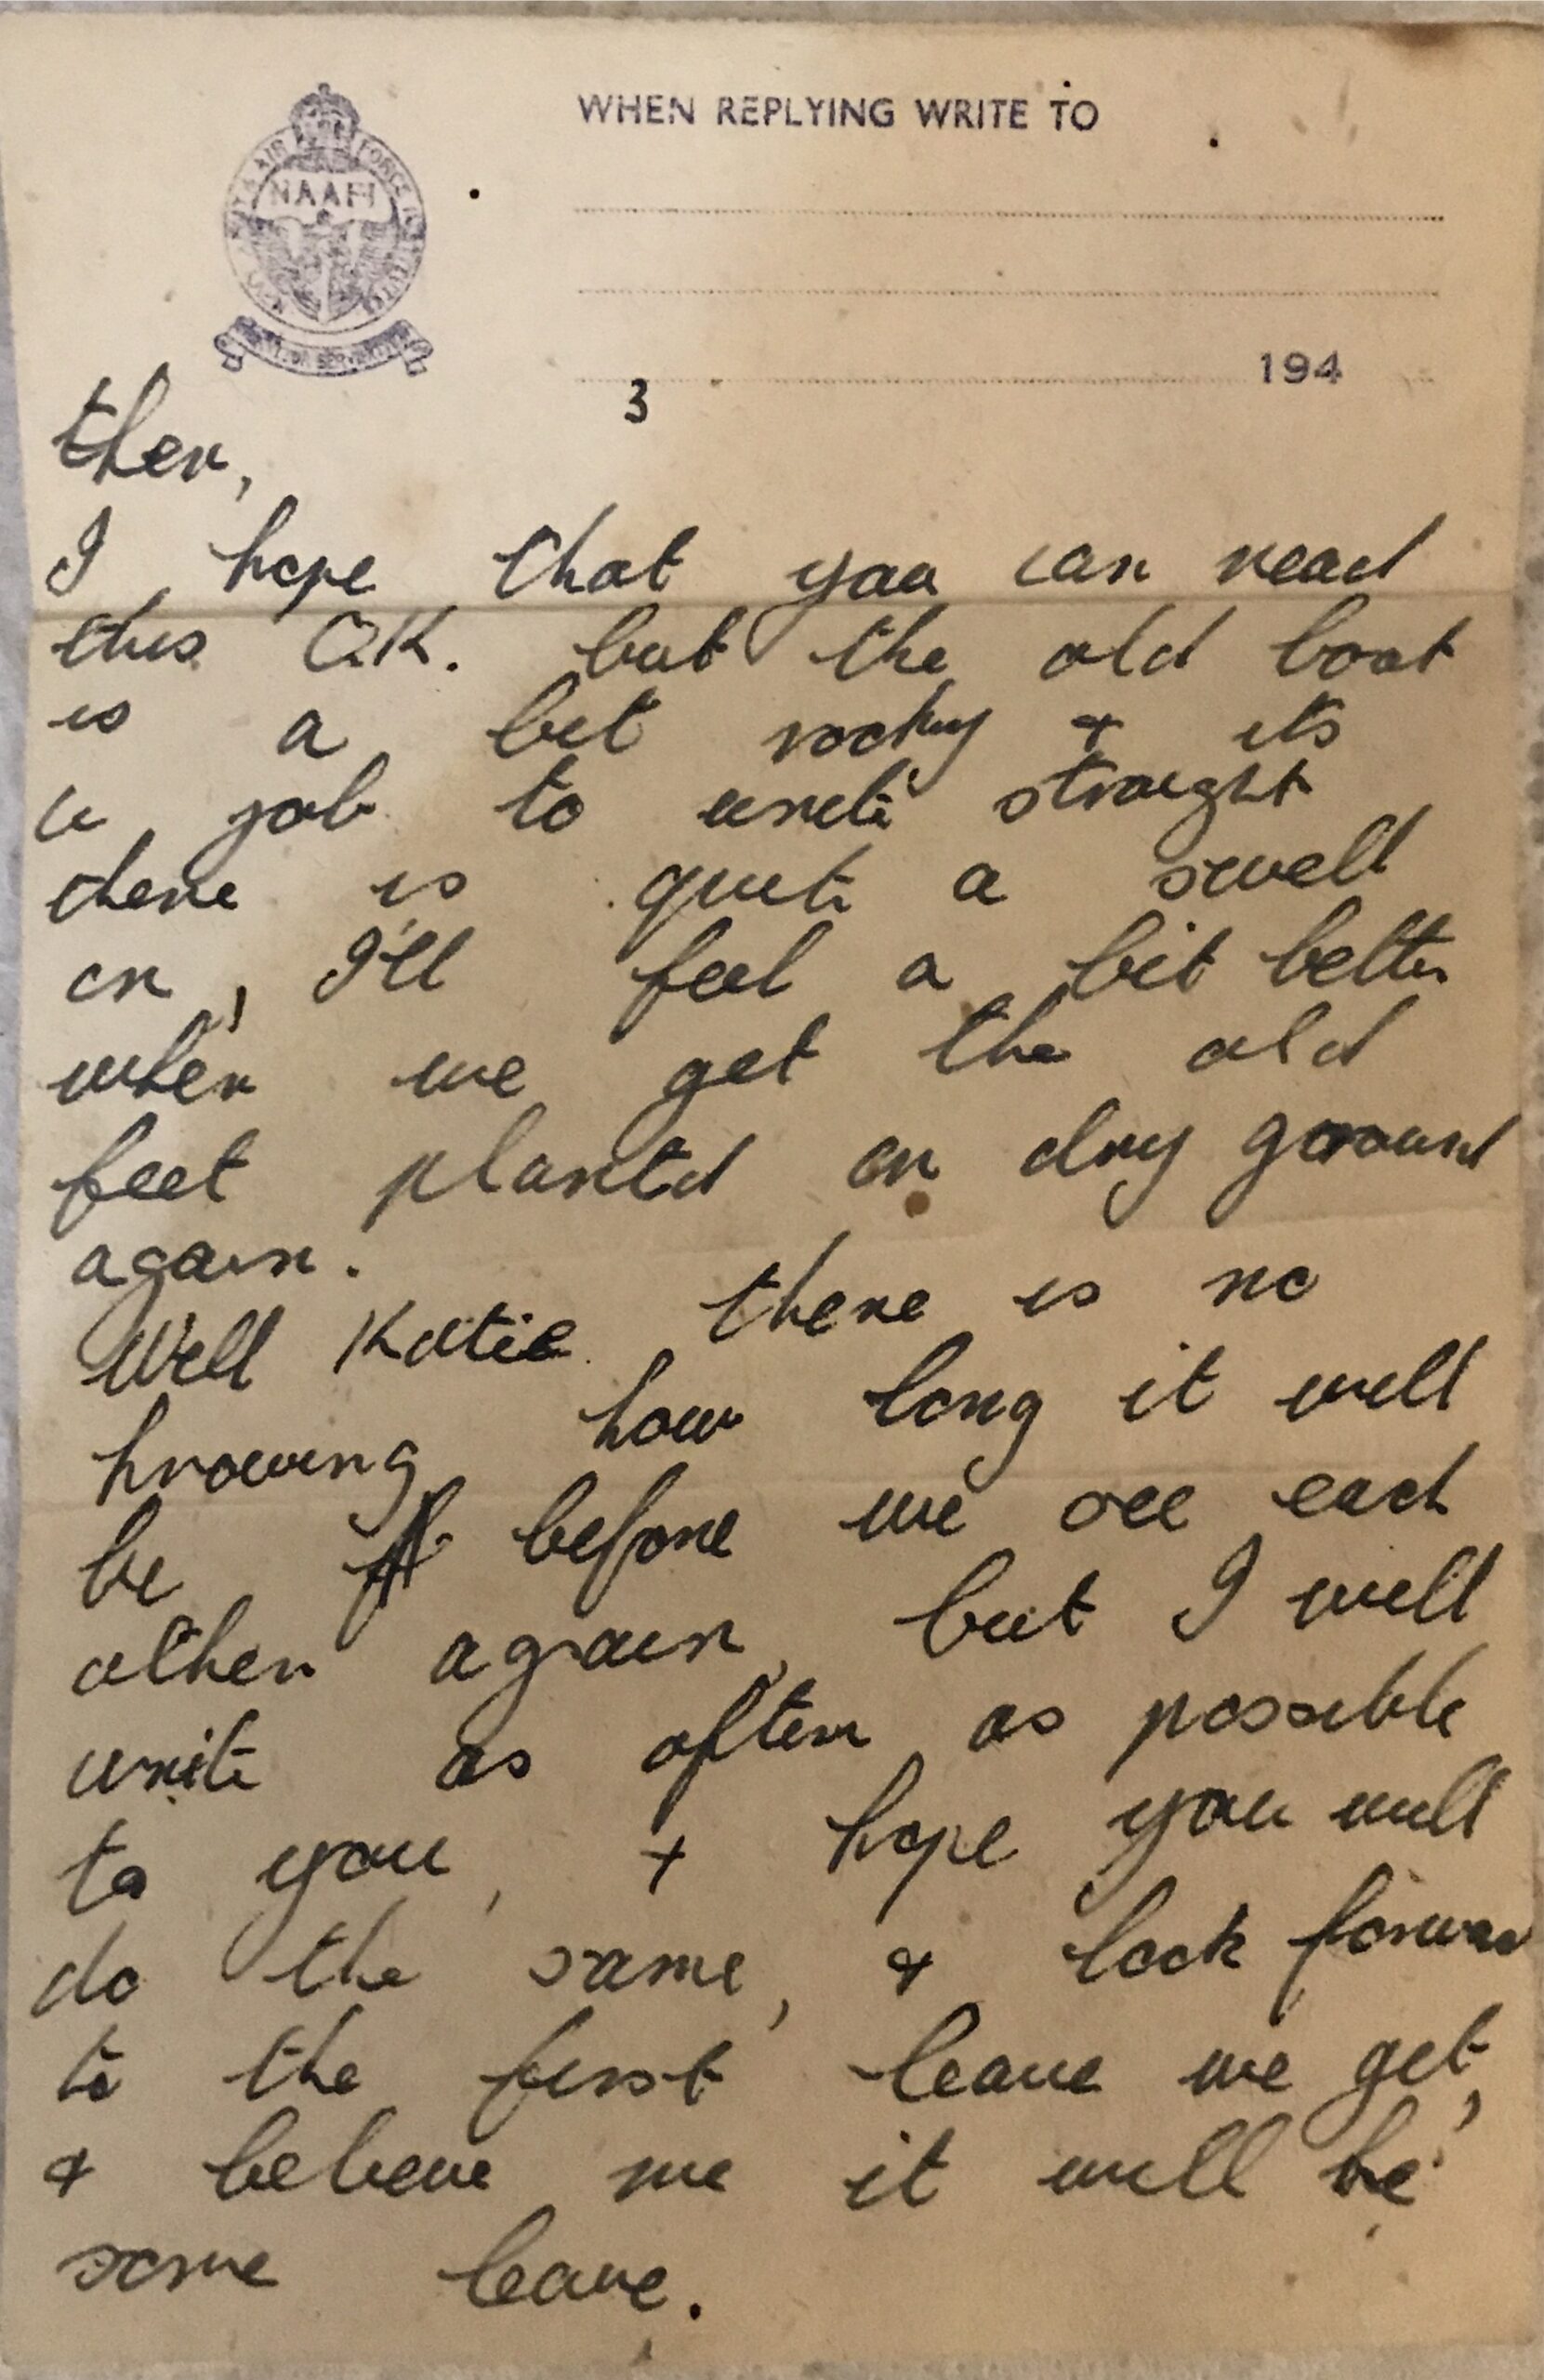 WHEN REPLYING WRITE TO
NAAFI
194
3
then,
I hope that you can read
this O.K. but the old boat
is a bit rocky & its
a job to write straight
there is quite a swell
on, I'll feel a bit better
when we get the old
feet planted on dry ground
again.
Well Katie there is no
knowing how long it will
be before we see each
other again, but I will
write as often as possible
to you, + hope you will
do the same, & look forward
to the first leave we get,
& believe me it will be
some leave.